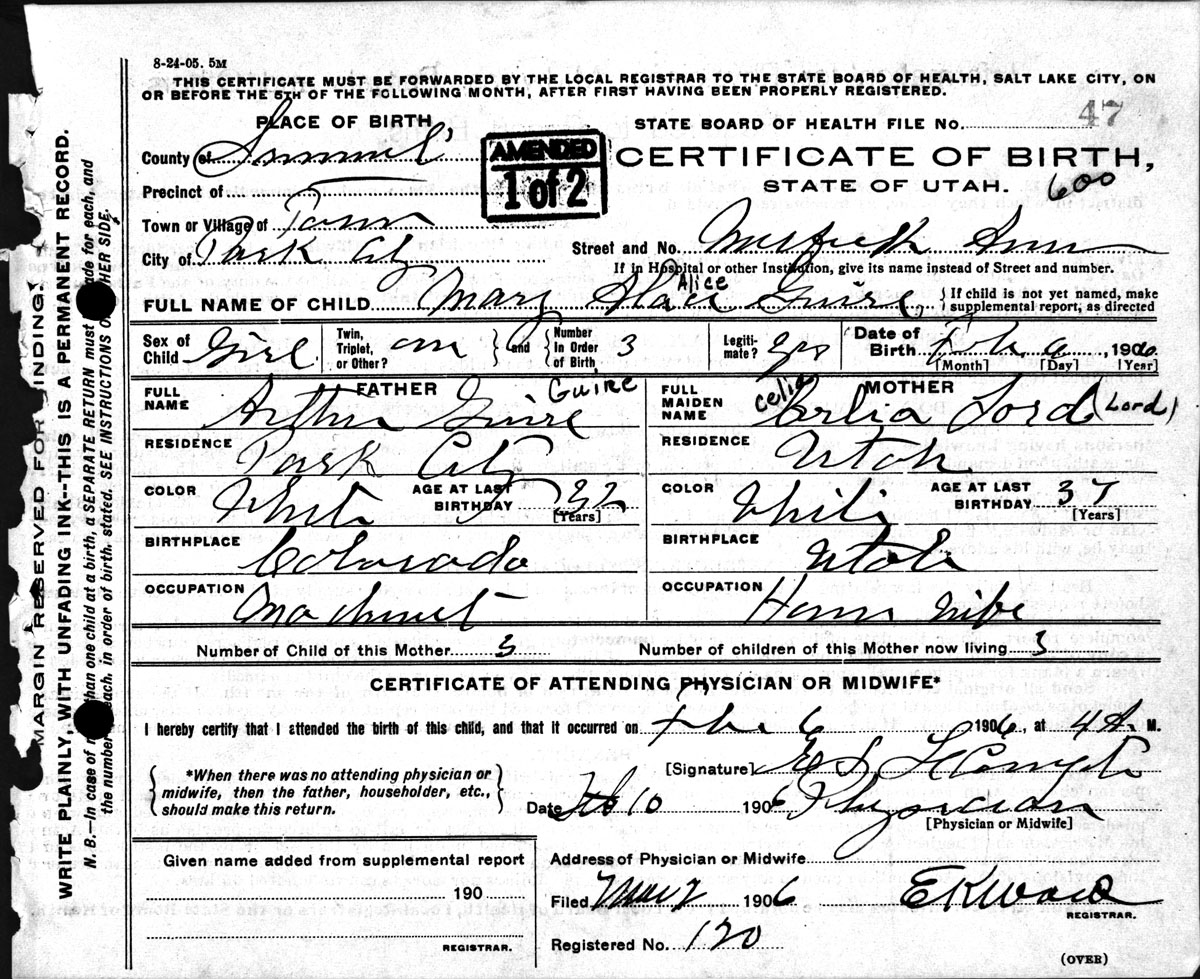 8-24-05. 5M
THIS CERTIFICATE MUST BE FORWARDED BY THE LOCAL REGISTRAR TO THE STATE BOARD OF HEALTH, SALT LAKE CITY, ON
OR BEFORE THE 5TH OF THE FOLLOWING MONTH, AFTER FIRST HAVING BEEN PROPERLY REGISTERED.
PLACE OF BIRTH
STATE BOARD OF HEALTH FILE No. 47
County of Summit
AMENDED
1 of 2
CERTIFICATE OF BIRTH,
STATE OF UTAH. 600
Precinct of
Town or Village of
City of Park City
Street and No.
If in Hospital or other Institution, give its name instead of Street and number.
Alice
FULL NAME OF CHILD Mary Guire
{ If child is not yet named, make
supplemental report, as directed
Sex of Child Girl
Twin, Triplet, or Other?
and
Number In Order of Birth, 3
Legitimate? yes
Date of Birth Feb 6, 1906.
[Month] [Day] [Year]
FATHER
FULL NAME Arthur Guire Guire
MOTHER
FULL MAIDEN NAME Celia Lord (Lord)
RESIDENCE Park City
RESIDENCE Utah
COLOR White
AGE AT LAST BIRTHDAY 32
[Years]
COLOR White
AGE AT LAST BIRTHDAY 37
[Years]
BIRTHPLACE Colorado
BIRTHPLACE Utah
OCCUPATION Machinist
OCCUPATION House wife
Number of Child of this Mother 3
Number of children of this Mother now living 3
CERTIFICATE OF ATTENDING PHYSICIAN OR MIDWIFE*
I hereby certify that I attended the birth of this child, and that it occurred on Feb 6 1906, at 4 A. M.
*When there was no attending physician or
midwife, then the father, householder, etc.,
should make this return.
[Signature]
Date Feb 10 1906 Physician
[Physician or Midwife]
Given name added from supplemental report
190
REGISTRAR.
Address of Physician or Midwife
Filed 1906
REGISTRAR.
Registered No. 120
(OVER)
MARGIN RESERVED FOR BINDING!
WRITE PLAINLY, WITH UNFADING INK--THIS IS A PERMANENT RECORD.
N. B.--In case of than one child at a birth, a SEPARATE RETURN must made for each, and
the number each, in order of birth, stated. SEE INSTRUCTIONS HER SIDE.